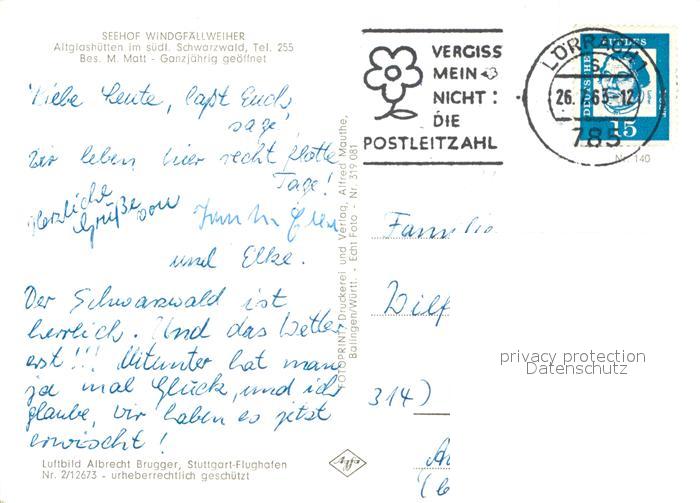 SEEHOF WINDGFÄLLWEIHER
Altglashütten im südl. Schwarzwald, Tel. 255
Bes. M. Matt - Ganzjährig geöffnet
VERGISS
MEIN
NICHT:
DIE
POSTLEITZAHL
LÖRRACH 1
26.7.63-12
785
DEUTSCHE BUNDESPOST
15
Nr. 140
Liebe Leute, laßt Euch
sage,
Wir leben hier recht flotte
Tage!
Herzliche
Grüße von
und Elke.
Der Schwarzwald ist
herrlich. Und das Wetter
erst!!! Mitunter hat man
ja mal Glück, und ich
glaube, wir haben es jetzt
erwischt!
FOTOPRINT: Druckerei und Verlag, Alfred Mauthe,
Balingen/Württ. - Echt Foto - Nr. 319 081
Familie
Wilf
314)
privacy protection
Datenschutz
Luftbild Albrecht Brugger, Stuttgart-Flughafen
Nr. 2/12673 - urheberrechtlich geschützt
Agfa